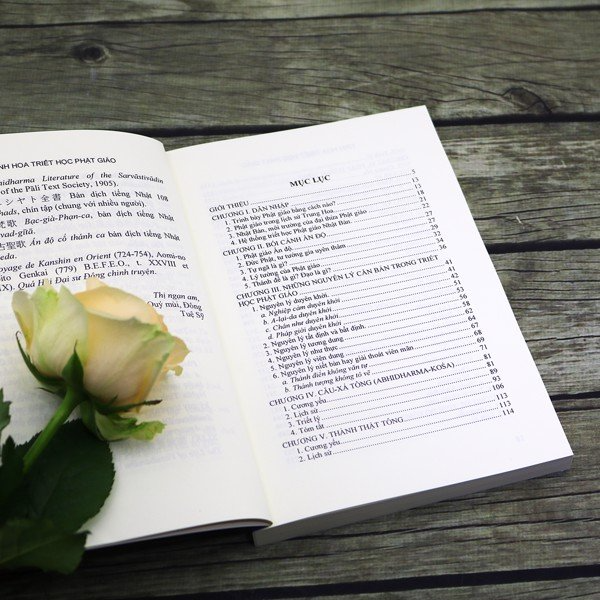 NH HOA TRIẾT HỌC PHẬT GIÁO
hidharma Literature of the Sarvāstivādin
of the Pāli Text Society, 1905).
シヤト全書 Bản dịch tiếng Nhật 108
hads, chín tập (chung với nhiều người).
梵歌 Bạc-già-Phạn-ca, bản dịch tiếng Nhật
vad-gītā.
古聖歌 Ấn độ cổ thánh ca bản dịch tiếng Nhật
eda.
oyage de Kanshin en Orient (724-754), Aomi-no
ito Genkai (779) B.E.F.E.O., t. XXVIII et
IX). Quá Hải Đại sư Đông chinh truyện.
Thị ngạn am,
Quý mùi, Đông
Tuệ Sỹ
MỤC LỤC
GIỚI THIỆU 5
CHƯƠNG I. DẪN NHẬP 13
1. Trình bày Phật giáo bằng cách nào? 13
2. Phật giáo trong lịch sử Trung Hoa 18
3. Nhật Bản, môi trường của đạo thừa Phật giáo 21
4. Hệ thống triết học Phật giáo Nhật Bản 22
CHƯƠNG II. BỐI CẢNH ẤN ĐỘ 27
1. Phật giáo Ấn độ 27
2. Đức Phật, tư tưởng gia uyên thâm 29
3. Tự ngã là gì? 34
4. Lý tưởng của Phật giáo 36
5. Thánh đế là gì? Đạo là gì?
CHƯƠNG III. NHỮNG NGUYÊN LÝ CĂN BẢN TRONG TRIẾT
HỌC PHẬT GIÁO 41
1. Nguyên lý duyên khởi 41
a. Nghiệp cảm duyên khởi 42
b. A-lại-da duyên khởi 53
c. Chân như duyên khởi 56
d. Pháp giới duyên khởi 58
2. Nguyên lý tất định và bất định 62
3. Nguyên lý tương dung 64
4. Nguyên lý như thực 67
5. Nguyên lý viên dung 68
6. Nguyên lý niết bàn hay giải thoát viên mãn 69
a. Thánh điển không văn tự 71
b. Thánh tượng không tô vẽ 77
CHƯƠNG IV. CÂU-XÁ TÔNG (ABHIDHARMA-KOŚA) 81
1. Cương yếu 81
2. Lịch sử 89
3. Triết lý 93
4. Tóm tắt 106
CHƯƠNG V. THÀNH THẬT TÔNG 113
1. Cương yếu 113
2. Lịch sử 114